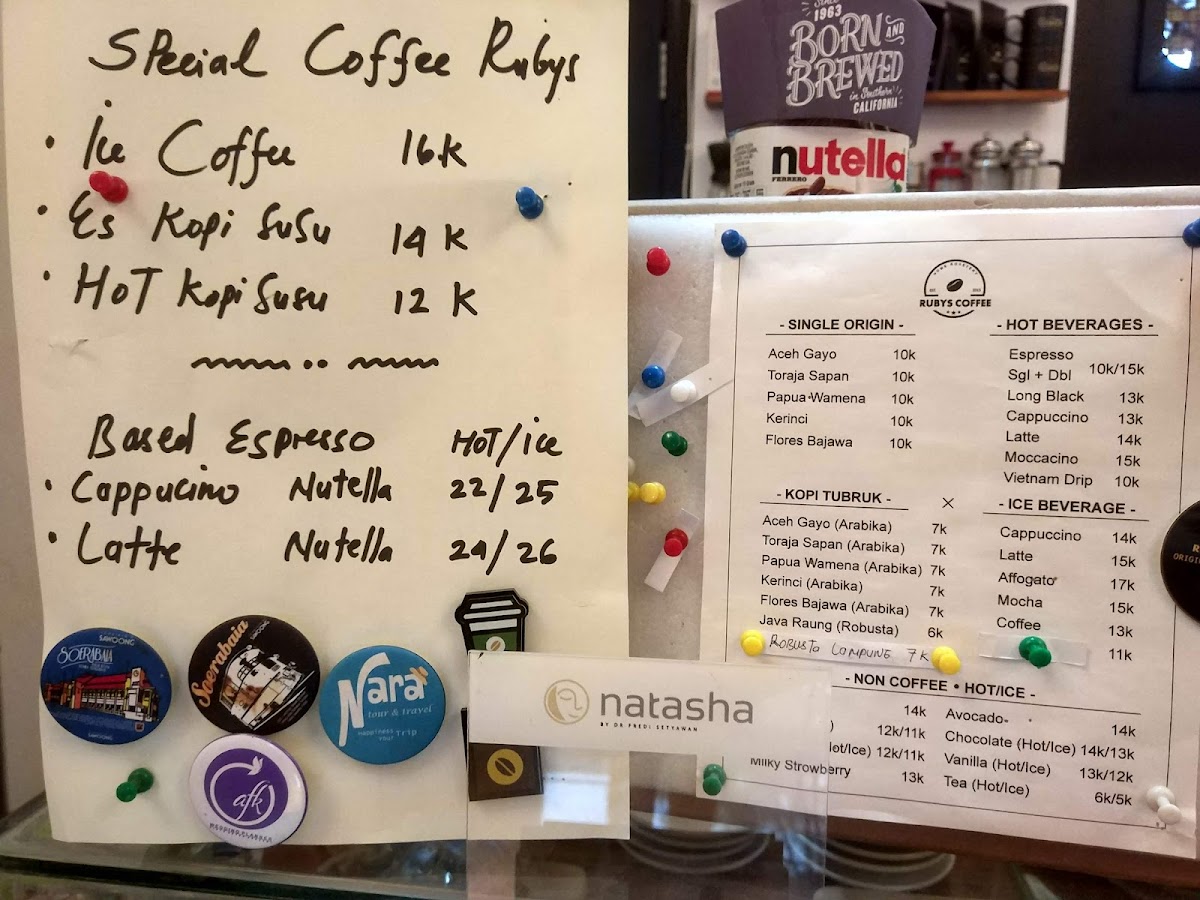 Special Coffee Rubys
• Ice Coffee 16K
• Es Kopi SuSu 14 K
• HOT Kopi Susu 12 K
Based Espresso HOT/ice
• Cappucino Nutella 22/25
• Latte Nutella 24/26
SAWOONG
SOERABAIA
Soerabaia
SAWOONG
Nara
tour & travel
HAPPINESS
your Trip
afk
natasha
BY DR FREDI SETYAWAN
SINCE
1963
BORN AND
BREWED
in Southern
CALIFORNIA
nutella
FERRERO
HOME ROASTERY
RUBYS COFFEE
- SINGLE ORIGIN -
Aceh Gayo 10k
Toraja Sapan 10k
Papua Wamena 10k
Kerinci 10k
Flores Bajawa 10k
- KOPI TUBRUK -
Aceh Gayo (Arabika) 7k
Toraja Sapan (Arabika) 7k
Papua Wamena (Arabika) 7k
Kerinci (Arabika) 7k
Flores Bajawa (Arabika) 7k
Java Raung (Robusta) 6k
ROBUSTA LAMPUNG 7K
- HOT BEVERAGES -
Espresso
Sgl + Dbl 10k/15k
Long Black 13k
Cappucino 13k
Latte 14k
Moccacino 15k
Vietnam Drip 10k
- ICE BEVERAGE -
Cappuccino 14k
Latte 15k
Affogato 17k
Mocha 15k
Coffee 13k
11k
- NON COFFEE • HOT/ICE -
14k
12k/11k
lot/Ice) 12k/11k
Milky Strowberry 13k
Avocado 14k
Chocolate (Hot/Ice) 14k/13k
Vanilla (Hot/Ice) 13k/12k
Tea (Hot/Ice) 6k/5k